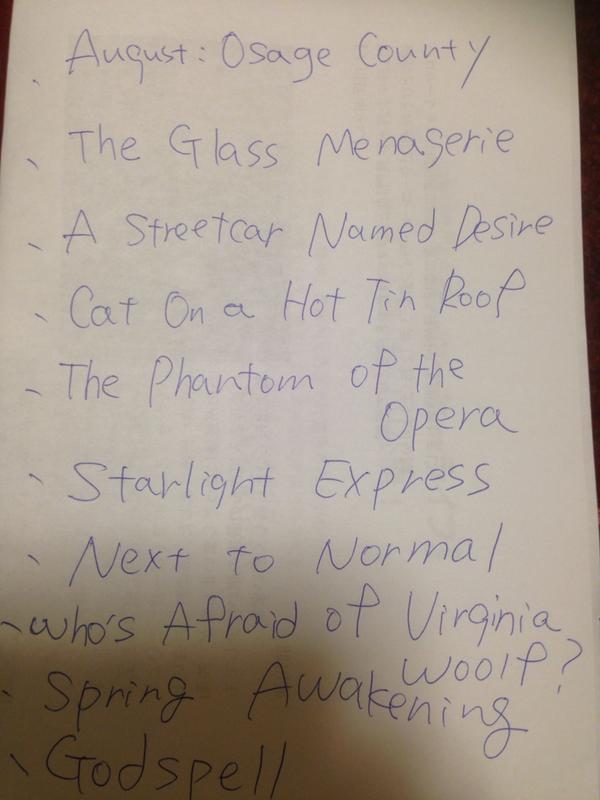 August: Osage County
The Glass Menagerie
A Streetcar Named Desire
Cat On a Hot Tin Roof
The Phantom of the
Opera
Starlight Express
Next to Normal
Who's Afraid of Virginia
Woolf?
Spring Awakening
Godspell